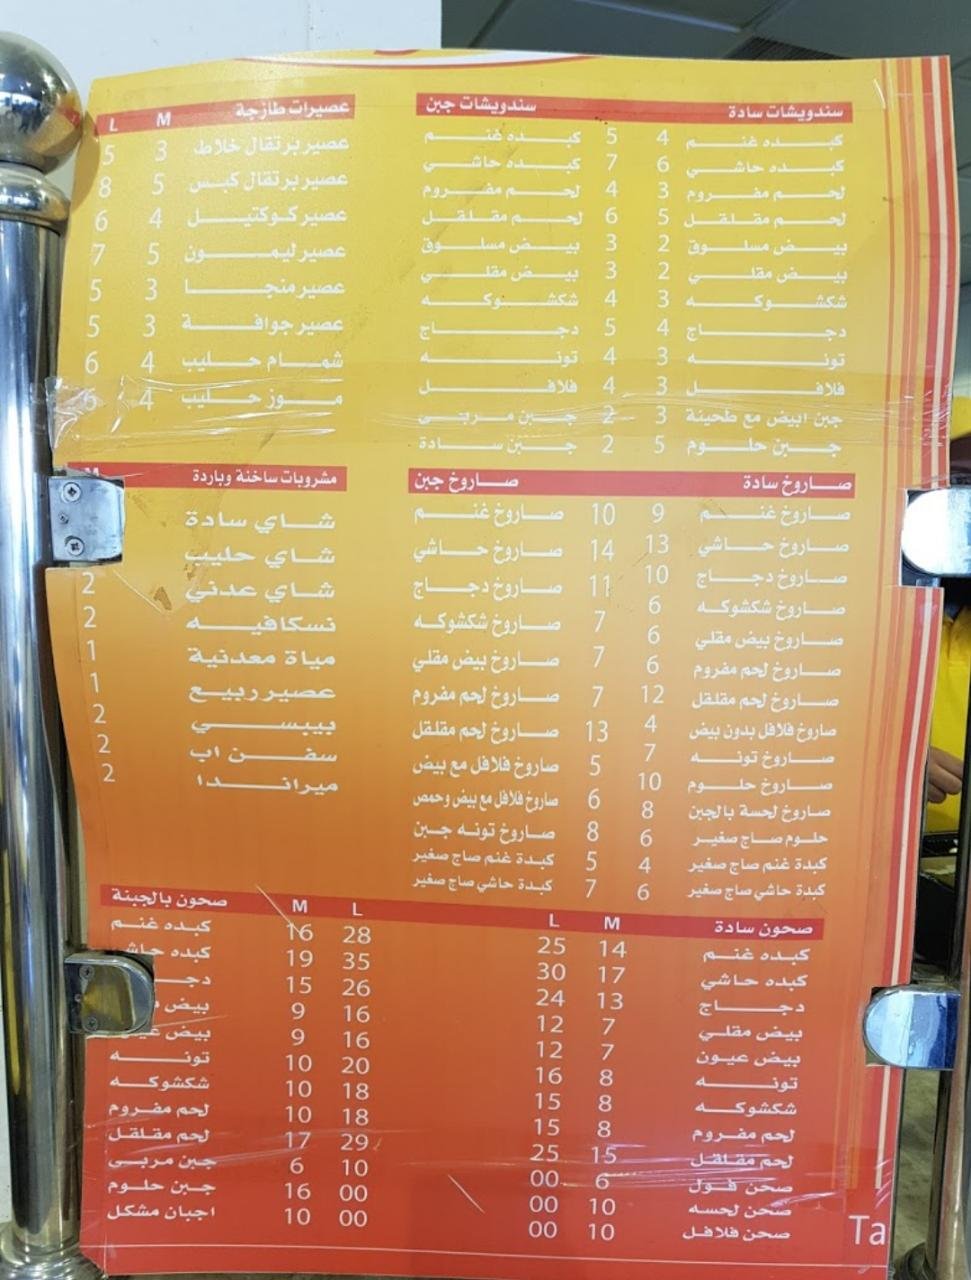 سندويشات سادة
كبده غنم 4
كبده حاشي 6
لحم مفروم 3
لحم مقلقل 5
بيض مسلوق 2
بيض مقلي 2
شكشوكه 3
دجاج 4
تونه 3
فلافل 3
جبن ابيض مع طحينة 3
جبن حلوم 5
سندويشات جبن
كبده غنم 5
كبده حاشي 7
لحم مفروم 4
لحم مقلقل 6
بيض مسلوق 3
بيض مقلي 3
شكشوكه 4
دجاج 5
تونه 4
فلافل 4
جبن مربى 2
جبن سادة 2
عصيرات طازجة M L
عصير برتقال خلاط 3 5
عصير برتقال كبس 5 8
عصير كوكتيل 4 6
عصير ليمون 5 7
عصير منجا 3 5
عصير جوافة 3 5
شمام حليب 4 6
موز حليب 4 6
صاروخ سادة
صاروخ غنم 9
صاروخ حاشي 13
صاروخ دجاج 10
صاروخ شكشوكه 6
صاروخ بيض مقلي 6
صاروخ لحم مفروم 6
صاروخ لحم مقلقل 12
صاروخ فلافل بدون بيض 4
صاروخ تونه 7
صاروخ حلوم 10
صاروخ لحسة بالجبن 8
حلوم صاج صغير 6
كبدة غنم صاج صغير 4
كبدة حاشي صاج صغير 6
صاروخ جبن
صاروخ غنم 10
صاروخ حاشي 14
صاروخ دجاج 11
صاروخ شكشوكه 7
صاروخ بيض مقلي 7
صاروخ لحم مفروم 7
صاروخ لحم مقلقل 13
صاروخ فلافل مع بيض 5
صاروخ فلافل مع بيض وحمص 6
صاروخ تونه جبن 8
كبدة غنم صاج صغير 5
كبدة حاشي صاج صغير 7
مشروبات ساخنة وباردة
شاي سادة
شاي حليب
شاي عدني 2
نسكافيه 2
مياة معدنية 1
عصير ربيع 1
بيبسي 2
سفن اب 2
ميراندا 2
صحون سادة M L
كبده غنم 14 25
كبده حاشي 17 30
دجاج 13 24
بيض مقلي 7 12
بيض عيون 7 12
تونه 8 16
شكشوكه 8 15
لحم مفروم 8 15
لحم مقلقل 15 25
صحن فول 6 00
صحن لحسه 10 00
صحن فلافل 10 00
صحون بالجبنة M L
كبده غنم 16 28
كبده 19 35
15 26
بيض 9 16
بيض 9 16
تونه 10 20
شكشوكه 10 18
لحم مفروم 10 18
لحم مقلقل 17 29
جبن مربى 6 10
جبن حلوم 16 00
اجبان مشكل 10 00
Ta